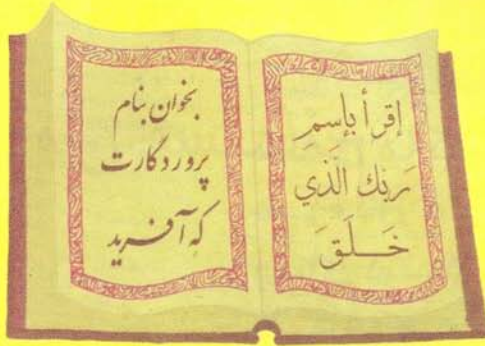 إقرأ بإسمِ
رَبِّك الَّذي
خَـلَقَ
بخوان بنام
پروردگارت
که آفرید